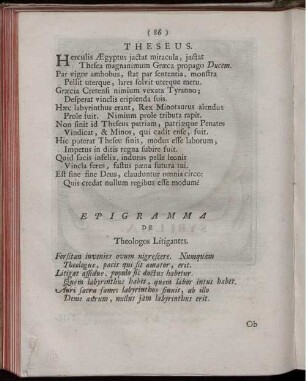 ( 86 )
THESEUS.
Herculis Ægyptus jactat miracula, jactat
Thesea magnanimum Græca propago Ducem.
Par vigor ambobus, stat par sententia, monstra
Pellit uterque, lares solvit uterque metu.
Græcia Cretensi nimium vexata Tyranno;
Desperat vinclis eripienda suis.
Hæc labyrinthus erant, Rex Minotaurus alendus
Prole fuit. Nimium prole tributa rapit.
Non sinit id Theseus patriam, patriæque Penates
Vindicat, & Minos, qui cadit ense, fuit.
Hic poterat Theseu finis, modus esse laborum,
Impetus in ditis regna subire fuit.
Quid facis infelix, indutus pelle leonit
Vincla feres, fastus pæna futura tui.
Est sine fine Deus, clauduntur omnia circo:
Quis credat nullum regibus esse modum?
EPIGRAMMA
DE
Theologos Litigantes.
Forsitan invenies ovum nigrescere. Nunquam
Theologus, pacis qui sit amator, erit.
Litigat assidue, populo sic doctus habetur.
Quem labyrinthus habet, quem labor intus habet.
Auri sacra fames labyrinthus finit, ab illo
Deme aurum, nullus jam labyrinthus erit.
Ob